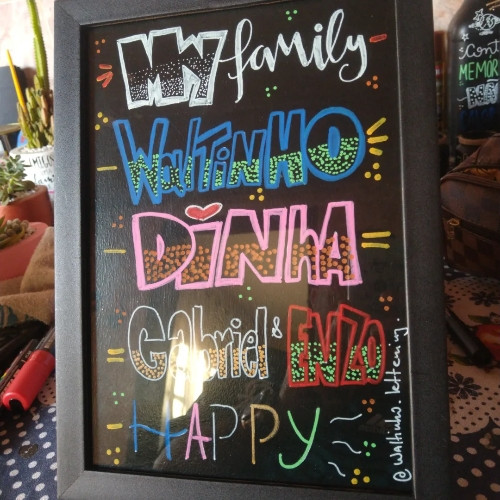 My family
Waltinho
Dinha
Gabriel & Enzo
HAPPY
@waltinho.lettering.
MEMOR